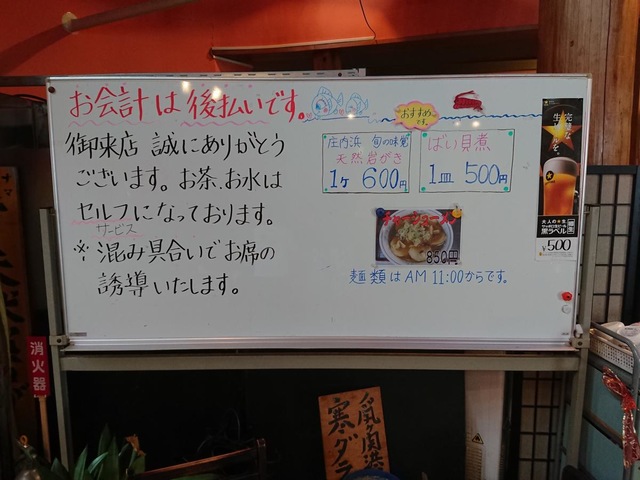 お会計は後払いです。
御来店 誠にありがとう
ございます。お茶、お水は
セルフになっております。
サービス
※混み具合いでお席の
誘導いたします。
おすすめ
です。
庄内浜 旬の味覚
天然岩がき
1ケ 600円
ばい貝煮
1皿 500円
チャーシューメン
850円
麺類はAM 11:00からです。
完璧な
生を、
黒ラベル
¥500
消火器
寒ダラ